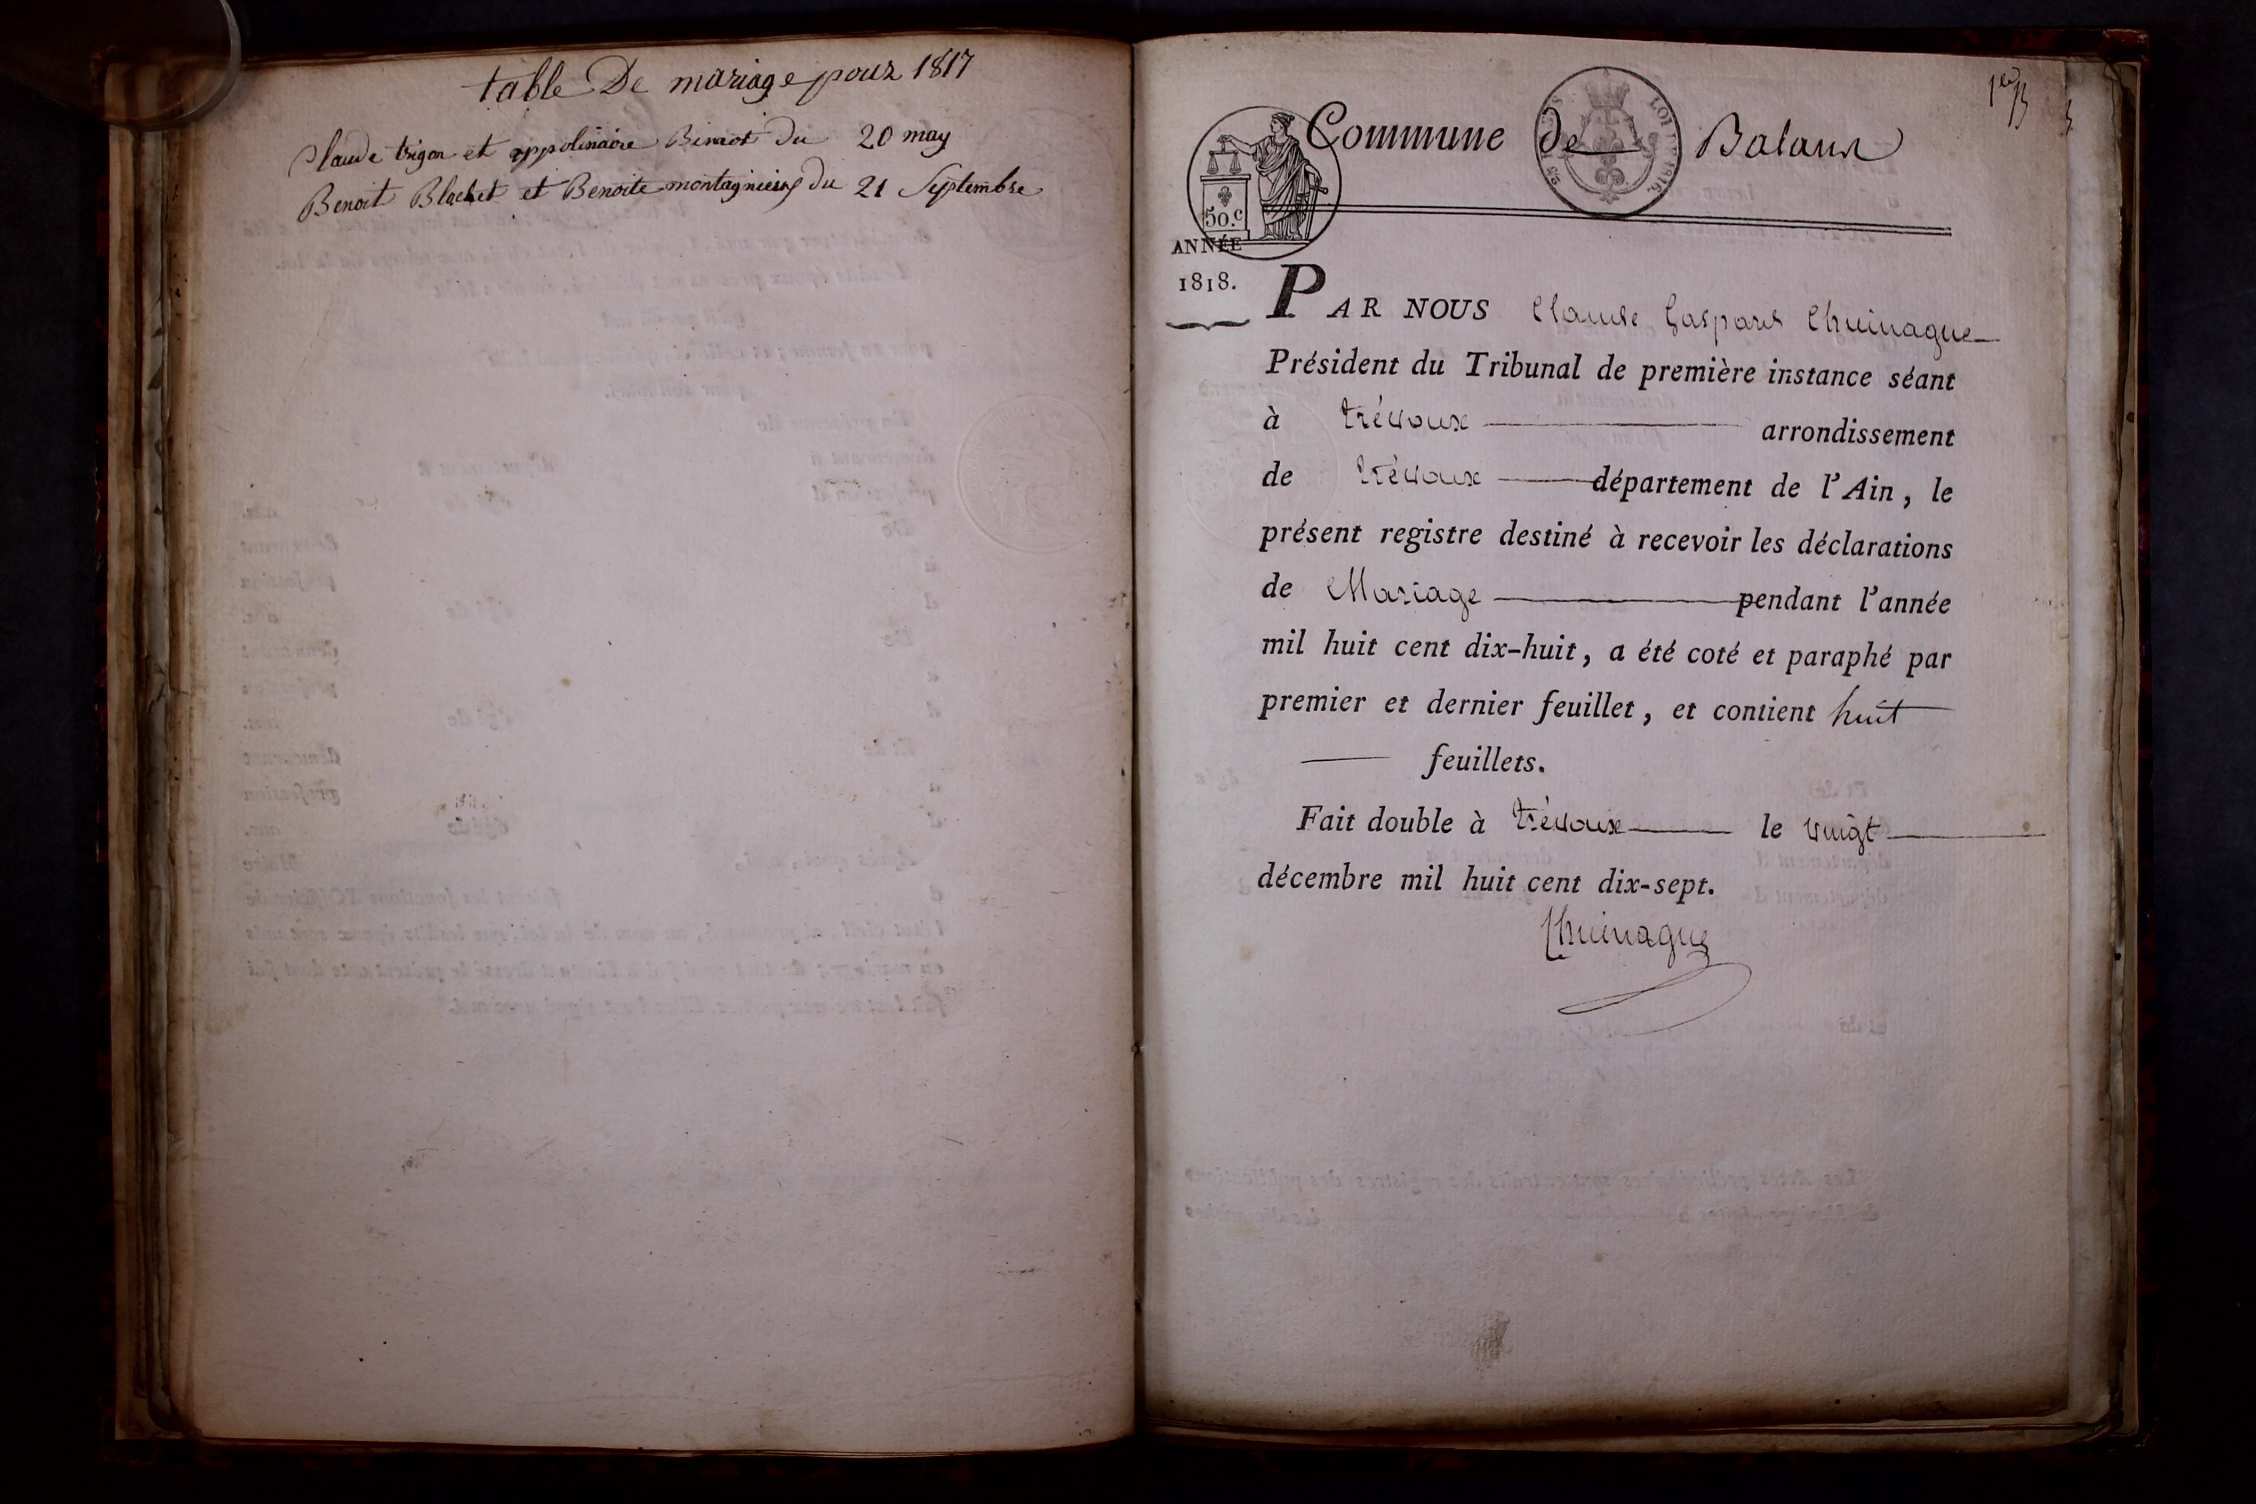 table De mariage pour 1817
Claude trigon et appolinaire Binot du 20 may
Benoit Blachet et Benoite montagnieux du 21 Septembre
1er
Commune de Balan
50.c
LOI 1816.
ANNÉE
1818.
PAR NOUS Claude Gaspard Chuinague
Président du Tribunal de première instance séant
à trévoux arrondissement
de trévoux département de l'Ain, le
présent registre destiné à recevoir les déclarations
de Mariage pendant l'année
mil huit cent dix-huit, a été coté et paraphé par
premier et dernier feuillet, et contient huit
feuillets.
Fait double à trévoux le vingt
décembre mil huit cent dix-sept.
Chuinague